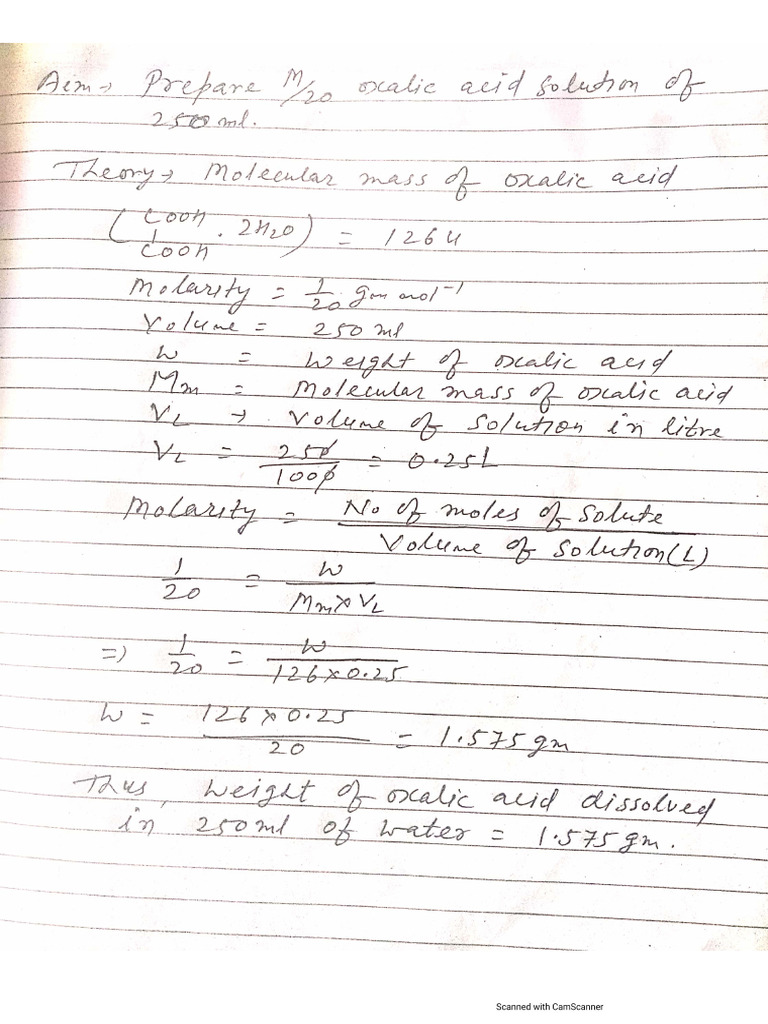 Aim → Prepare M/20 oxalic acid solution of
250 ml.
Theory → Molecular mass of oxalic acid
(COOH
| . 2H2O) = 126 u
COOH
Molarity = 1/20 gm mol⁻¹
Volume = 250 ml
W = Weight of oxalic acid
Mm = Molecular mass of oxalic acid
VL → Volume of solution in litre
VL = 250/1000 = 0.25L
Molarity = No of moles of solute / Volume of solution (L)
1/20 = W / Mm × VL
=> 1/20 = W / 126 × 0.25
W = 126 × 0.25 / 20 = 1.575 gm
Thus, Weight of oxalic acid dissolved
in 250 ml of water = 1.575 gm.
Scanned with CamScanner